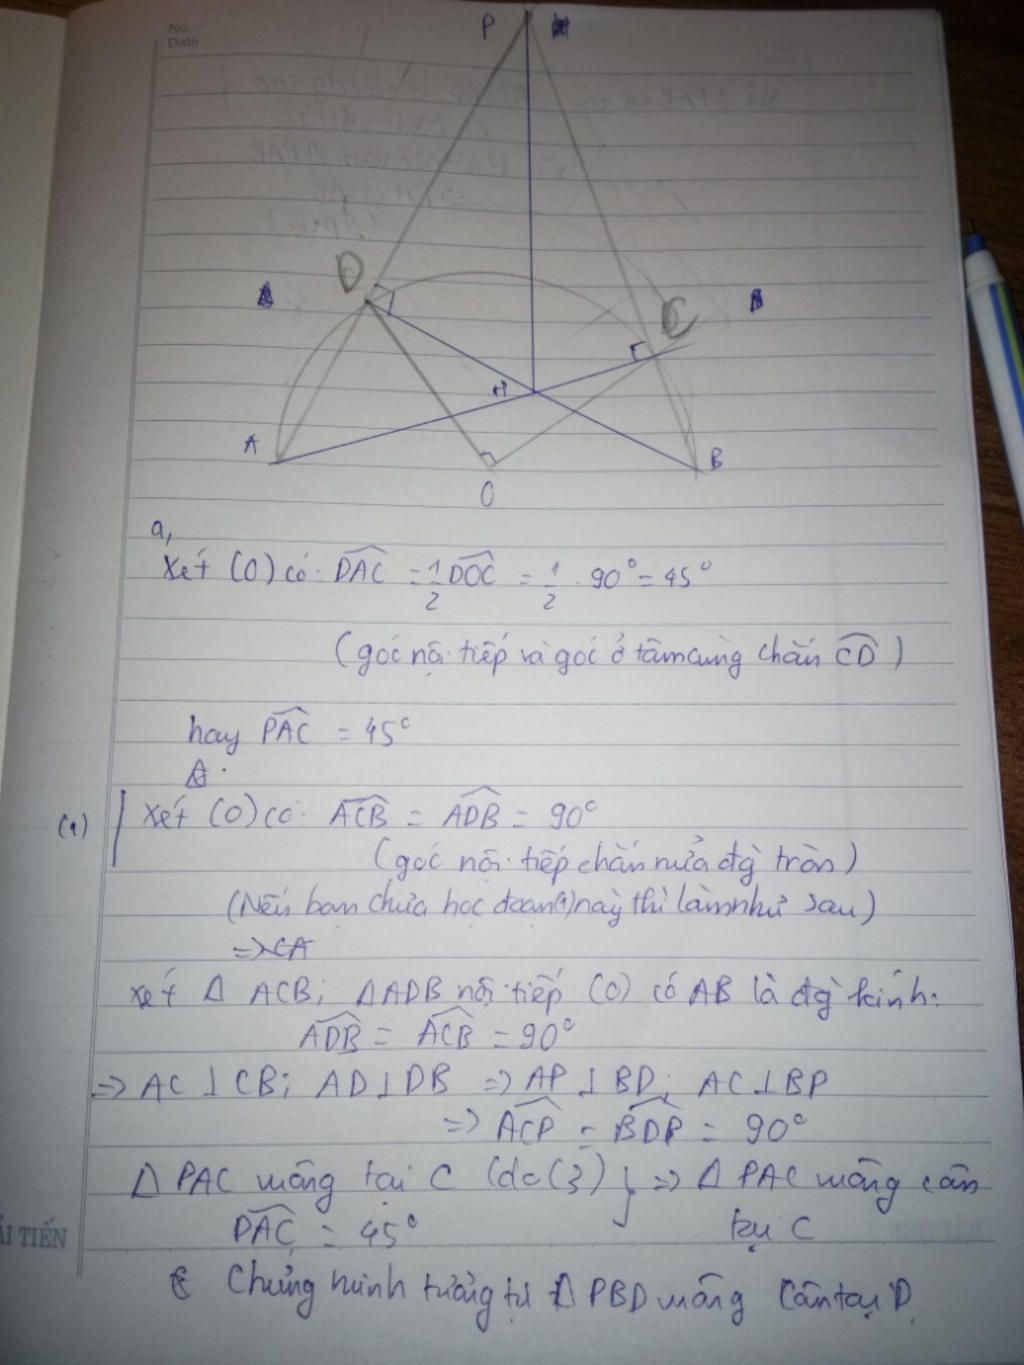 No.
Date
P
D
C
H
A
B
O
a,
Xét (O) có: DAC = 1/2 DOC = 1/2 . 90° = 45°
(góc nội tiếp và góc ở tâm cùng chắn CD)
hay PAC = 45°
(1) Xét (O) có: ACB = ADB = 90°
(góc nội tiếp chắn nửa đg tròn)
(Nếu bạn chưa học đoạn (1) này thì làm như sau)
xét Δ ACB; ΔADB nội tiếp (O) có AB là đg kính:
ADB = ACB = 90°
=> AC ⊥ CB; AD ⊥ DB => AP ⊥ BD; AC ⊥ BP
=> ACP = BDP = 90°
Δ PAC vuông tại C (do (3) } => Δ PAC vuông cân
PAC = 45° tại C
ẢI TIẾN
Chứng minh tương tự Δ PBD vuông cân tại D